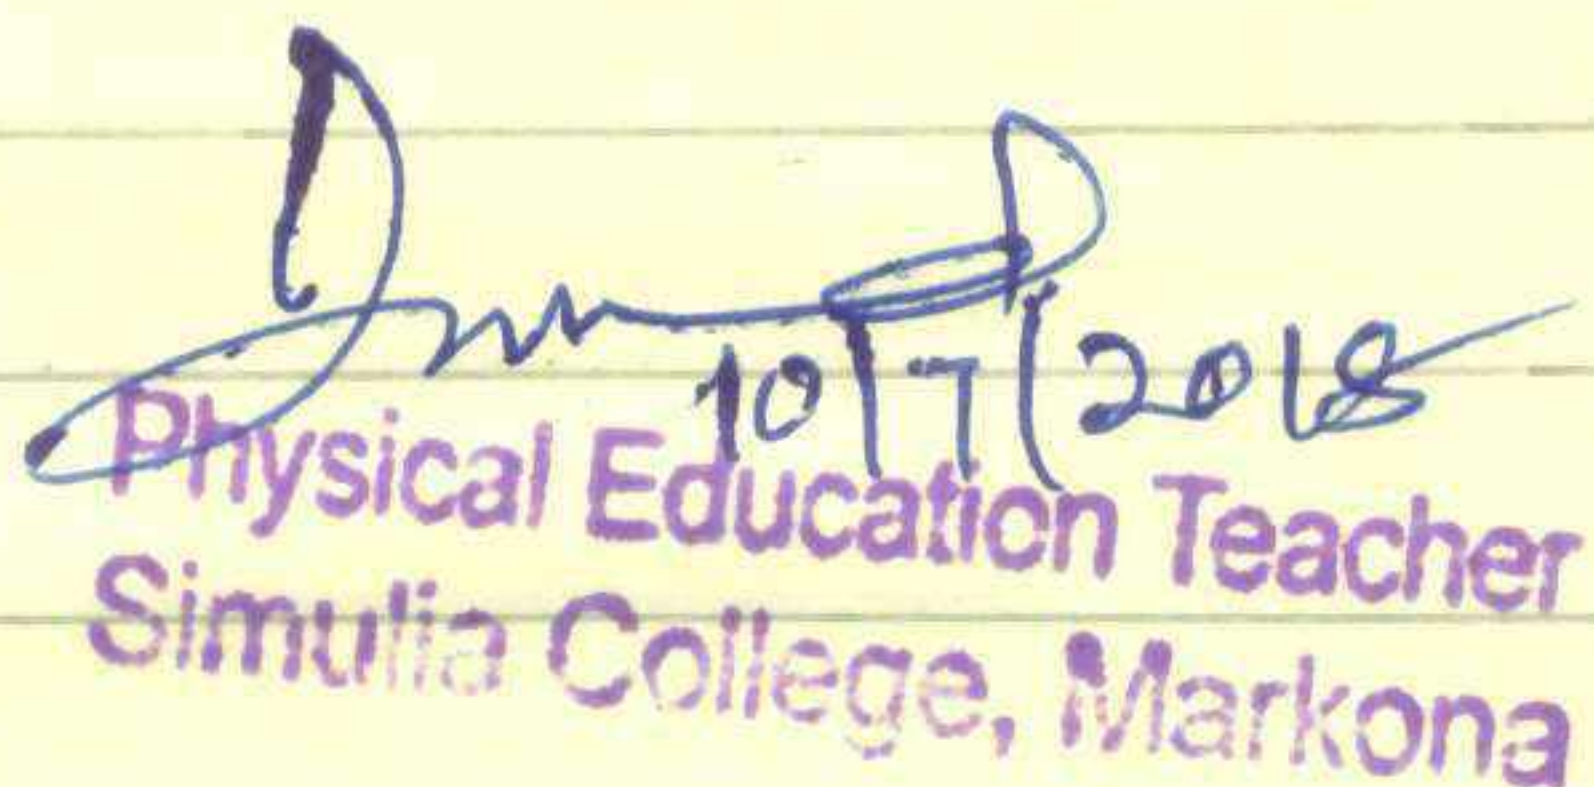 10/7/2018
Physical Education Teacher
Simulia College, Markona